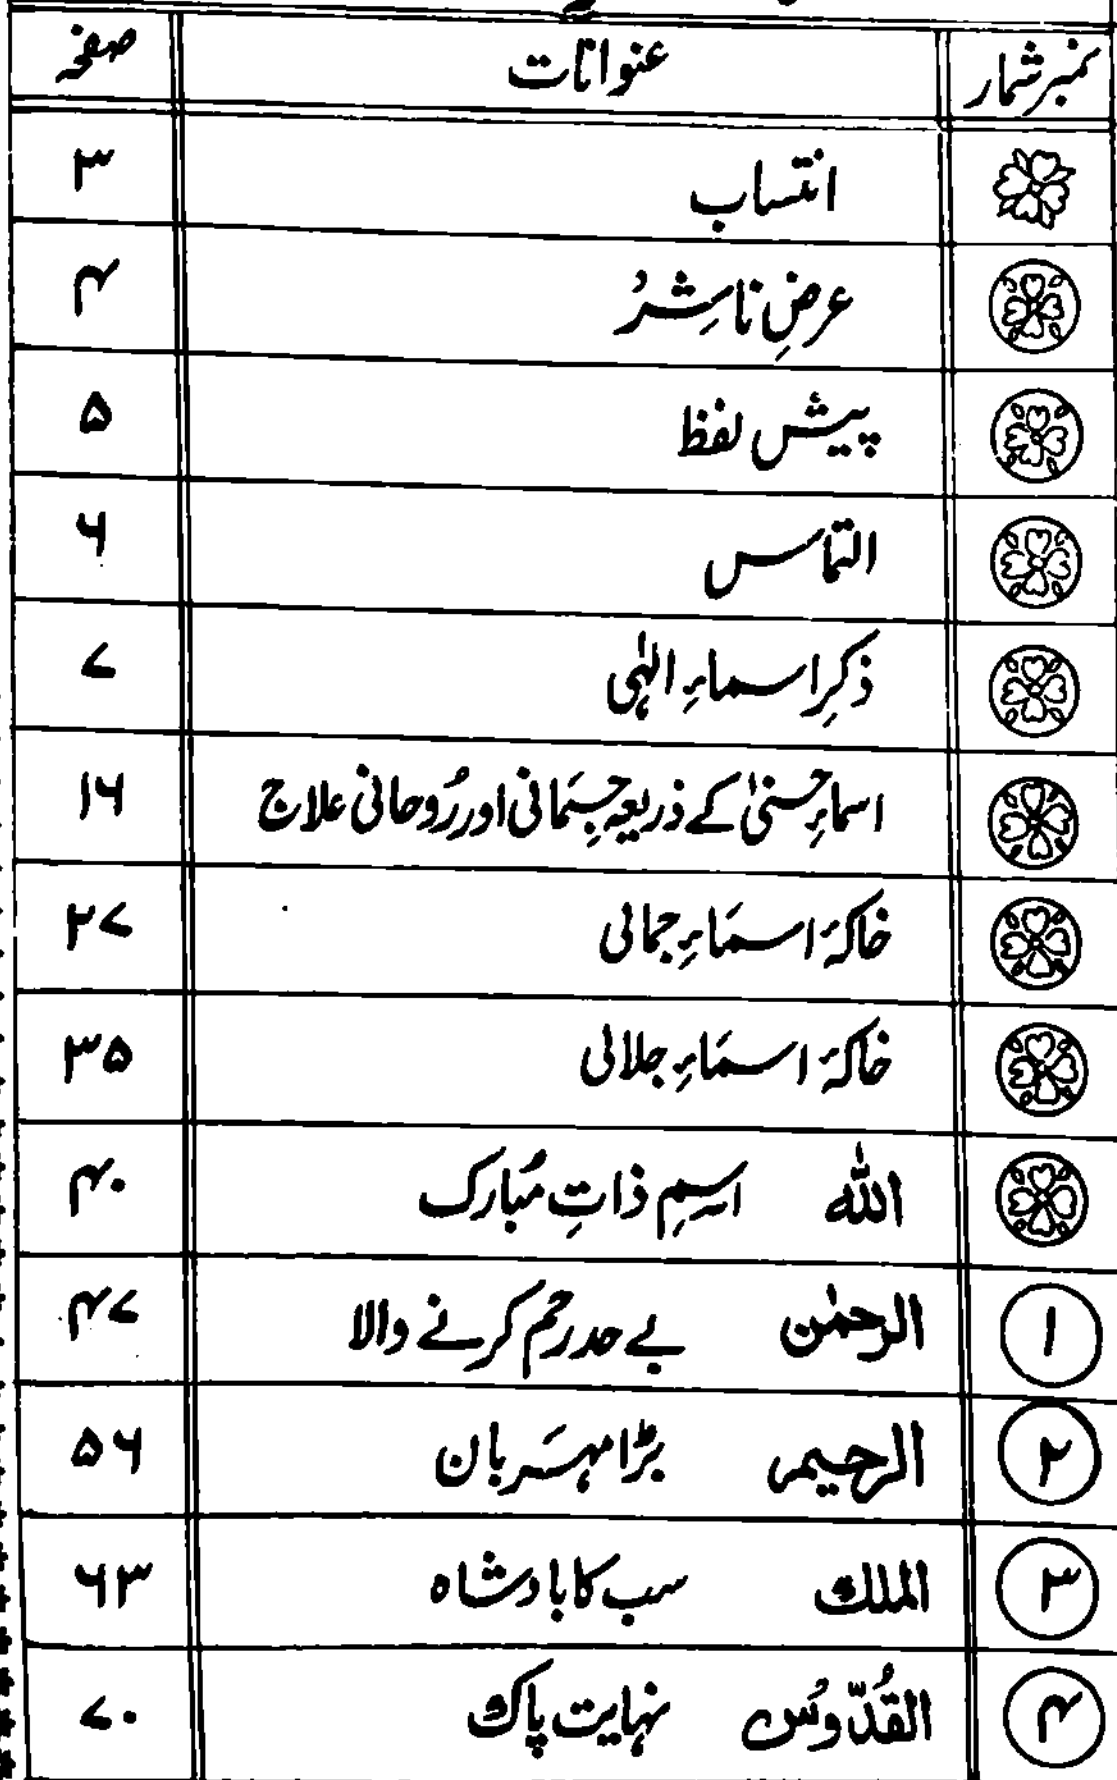 نمبر شمار عنوانات صفحہ
انتساب ۳
عرضِ ناشرُ ۴
پیش لفظ ۵
التماس ۶
ذکرِ اسماءِ الہٰی ۷
اسماءِ حسنیٰ کے ذریعہ جِسَمانی اور رُوحانی علاج ۱۶
خاکۂ اسمَاءِ جمالی ۲۷
خاکۂ اسمَاءِ جلالی ۳۵
اللہ اسمِ ذاتِ مُبارک ۴۰
۱ الرحمٰن بے حد رحم کرنے والا ۴۷
۲ الرحیم بڑا مہَربان ۵۶
۳ الملک سب کا بادشاہ ۶۳
۴ القُدّوسُ نہایت پاک ۷۰